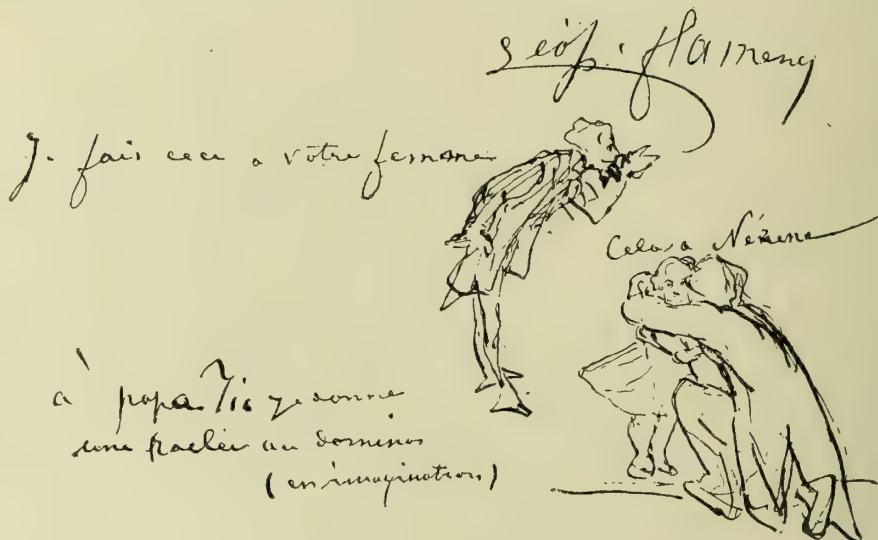 Léop. flameng
Je fais ceci a votre femme
Cela a Nérine
à papa Tic je donne
une raclée au dominos
(en imagination)